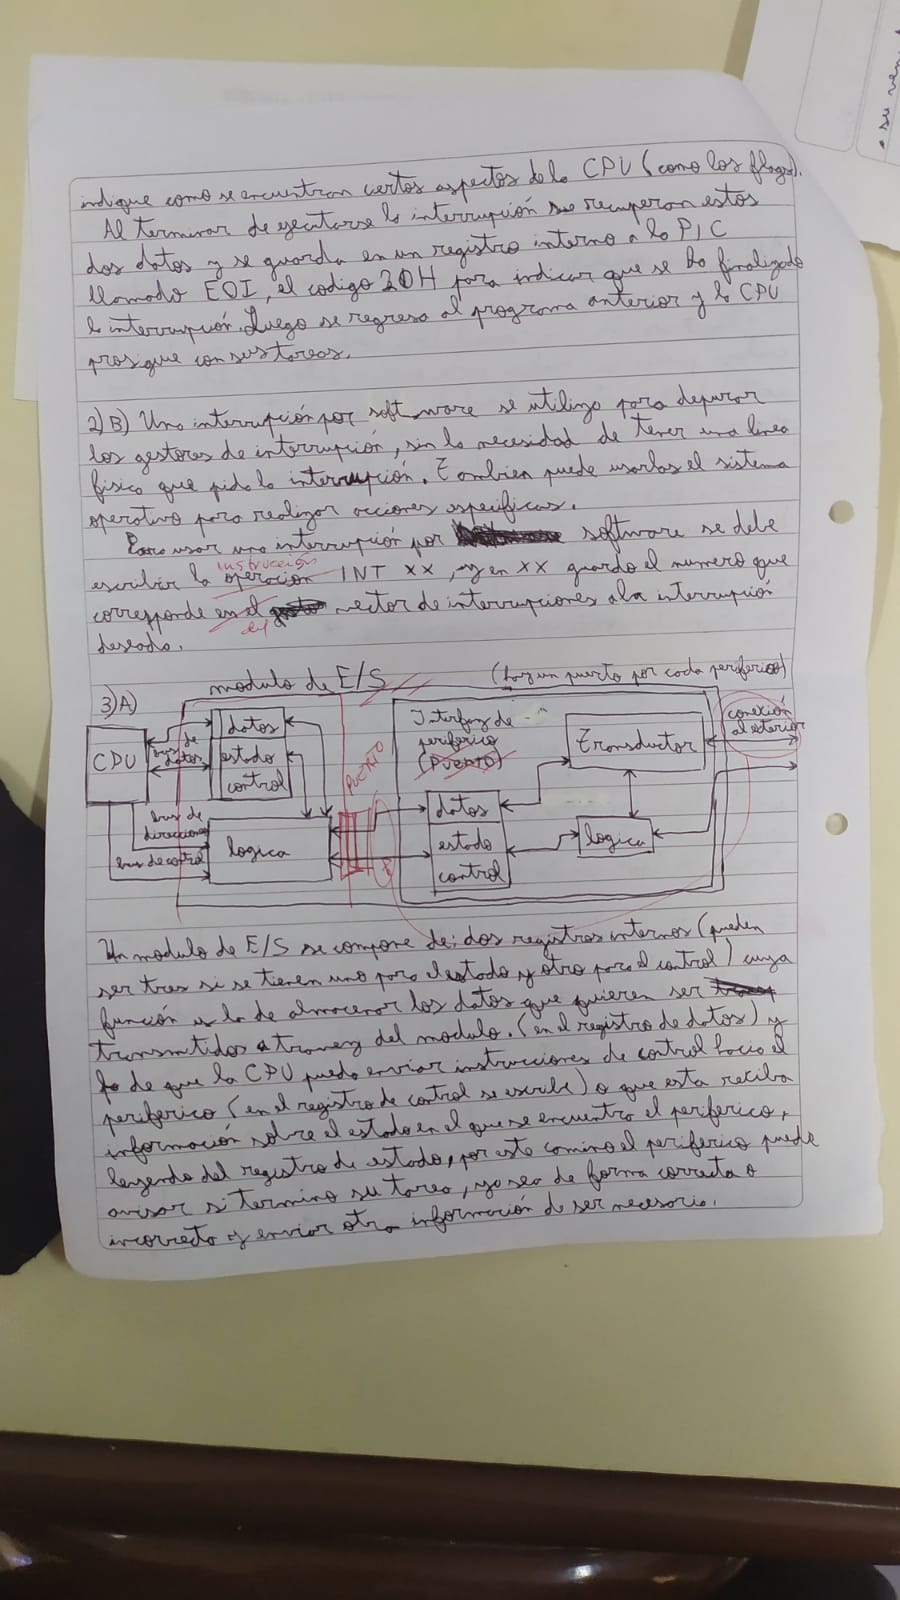 indique como se encuentran ciertos aspectos de la CPU (como los flags).
Al terminar de ejecutarse la interrupción se recuperan estos
dos datos y se guarda en un registro interno a la PIC
llamado EOI, el codigo 20H para indicar que se ha finalizado
la interrupción. Luego se regresa al programa anterior y la CPU
prosigue con sus tareas.
2)B) Una interrupción por software se utiliza para depurar
los gestores de interrupción, sin la necesidad de tener una linea
fisica que pida la interrupción. Tambien puede usarlas el sistema
operativo para realizar acciones especificas.
Para usar una interrupción por software se debe
instrucción
escribir la operación INT XX, y en XX guardo el numero que
corresponde en el vector de interrupciones a la interrupción
el
deseada.
3)A)
modulo de E/S
(hay un puerto por cada periferico)
CPU
bus de
datos
bus de
direcciones
bus de control
datos
estado
control
logica
PUERTO
Interfaz de
periferico
(PUERTO)
datos
estado
control
Transductor
logica
conexión
al exterior
Un modulo de E/S se compone de: dos registros internos (pueden
ser tres si se tienen uno para el estado y otro para el control) cuya
función es la de almacenar los datos que quieren ser
transmitidos a travez del modulo. (en el registro de datos) y
la de que la CPU pueda enviar instrucciones de control hacia el
periferico (en el registro de control se escribe) o que esta reciba
información sobre el estado en el que se encuentra el periferico,
leyendo del registro de estado, por este camino el periferico puede
avisar si termino su tarea, ya sea de forma correcta o
incorrecta y enviar otra información de ser necesario.